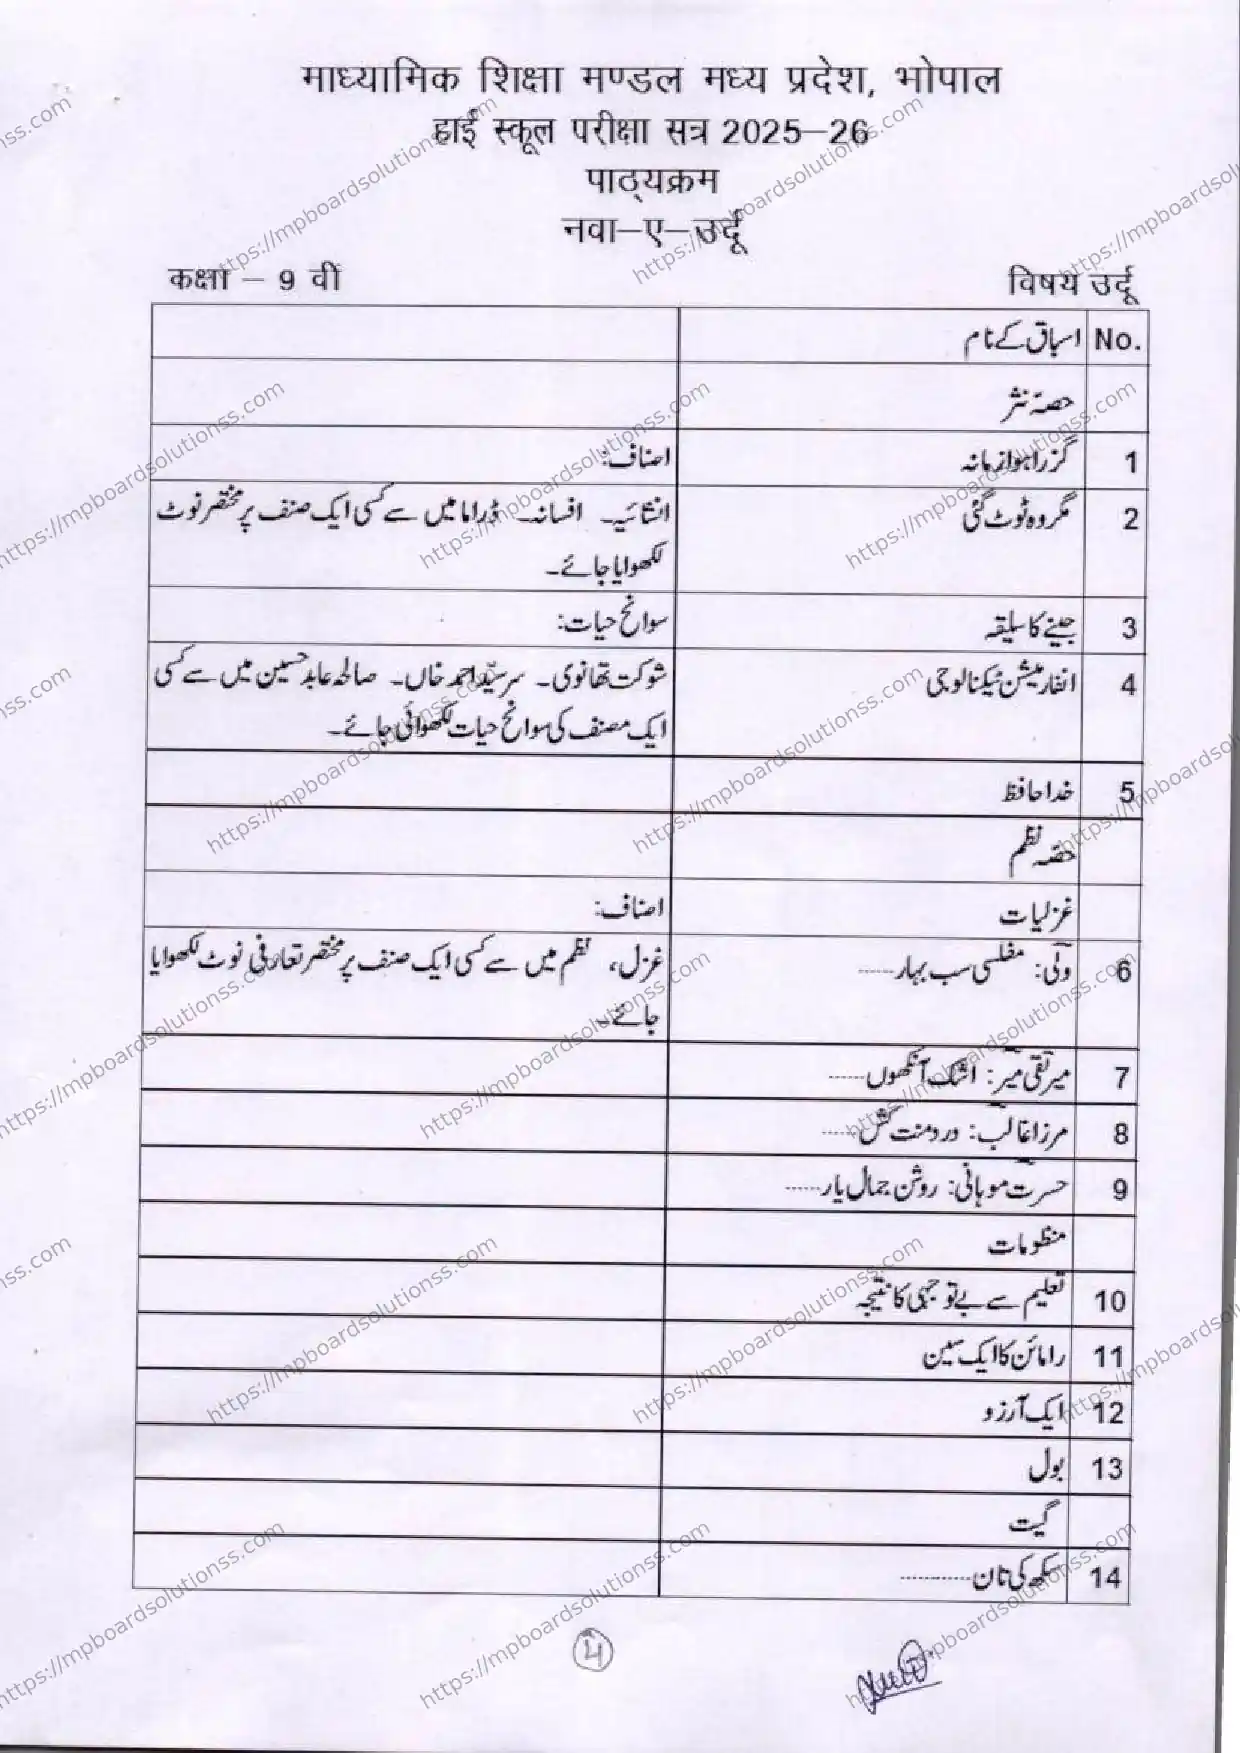 माध्यामिक शिक्षा मण्डल मध्य प्रदेश, भोपाल
हाई स्कूल परीक्षा सत्र 2025–26
पाठ्यक्रम
नवा–ए–उर्दू
कक्षा – 9 वीं
विषय उर्दू
No. اسباق کے نام
حصۂ نثر
1 گزرا ہوا زمانہ
اصناف:
2 مگر وہ ٹوٹ گئی
انشائیہ۔ افسانہ۔ ڈراما میں سے کسی ایک صنف پر مختصر نوٹ
لکھوایا جائے۔
3 جینے کا سلیقہ
سوانح حیات:
4 انفارمیشن ٹیکنالوجی
شوکت تھانوی۔ سر سیّد احمد خاں۔ صالحہ عابد حسین میں سے کسی
ایک مصنف کی سوانح حیات لکھوائی جائے۔
5 خدا حافظ
حصّہ نظم
غزلیات
اصناف:
6 ولی: مفلسی سب بہار......
غزل، نظم میں سے کسی ایک صنف پر مختصر تعارفی نوٹ لکھوایا
جائے۔
7 میر تقی میر: اشک آنکھوں......
8 مرزا غالب: درد منت کش......
9 حسرت موہانی: روشن جمال یار......
منظومات
10 تعلیم سے بے توجہی کا نتیجہ
11 رامائن کا ایک سین
12 ایک آرزو
13 بول
گیت
14 سکھ کی تان............
4
https://mpboardsolutionss.com